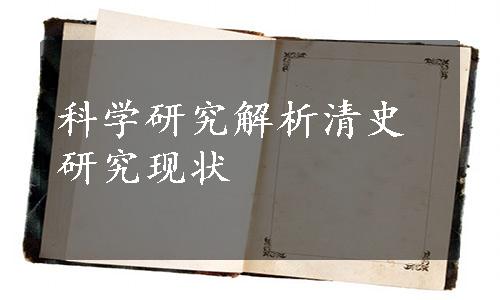 科学研究解析清史
研究现状